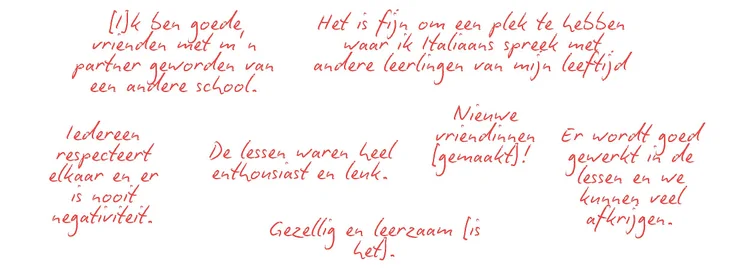 [I]k ben goede
vrienden met m'n
partner geworden van
een andere school.
Het is fijn om een plek te hebben
waar ik Italiaans spreek met
andere leerlingen van mijn leeftijd
Iedereen
respecteert
elkaar en er
is nooit
negativiteit.
De lessen waren heel
enthousiast en leuk.
Nieuwe
vriendinnen
[gemaakt]!
Er wordt goed
gewerkt in de
lessen en we
kunnen veel
afkrijgen.
Gezellig en leerzaam [is
het].